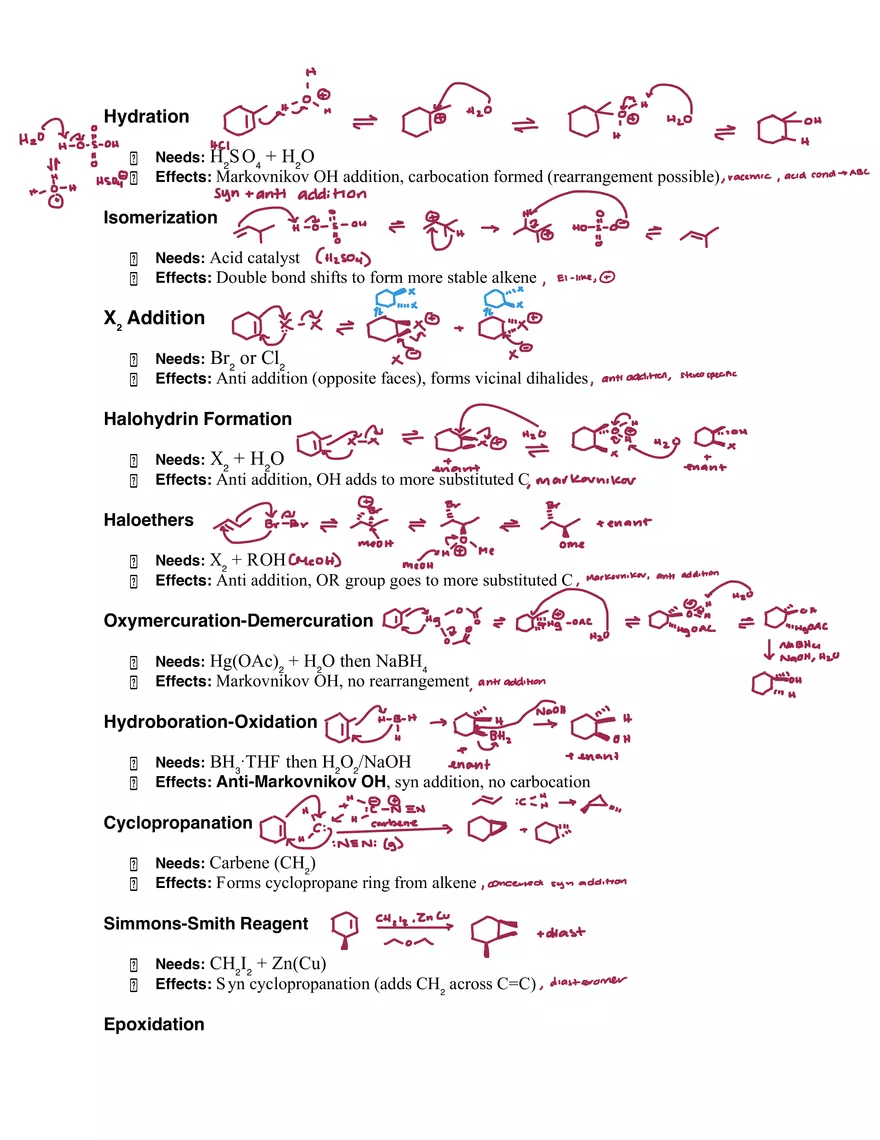 Hydration
HCl
Needs: H2SO4 + H2O
Effects: Markovnikov OH addition, carbocation formed (rearrangement possible), racemic, acid cond → ABC
Syn + anti addition
Isomerization
Needs: Acid catalyst (H2SO4)
Effects: Double bond shifts to form more stable alkene, E1-like, ⊕
X2 Addition
Needs: Br2 or Cl2
Effects: Anti addition (opposite faces), forms vicinal dihalides, anti addition, stereospecific
Halohydrin Formation
+ enant
+ enant
Needs: X2 + H2O
Effects: Anti addition, OH adds to more substituted C, markovnikov
Haloethers
+ enant
Needs: X2 + ROH (MeOH)
Effects: Anti addition, OR group goes to more substituted C, Markovnikov, anti addition
Oxymercuration-Demercuration
NaBH4
NaOH, H2O
Needs: Hg(OAc)2 + H2O then NaBH4
Effects: Markovnikov OH, no rearrangement, anti addition
Hydroboration-Oxidation
NaOH
+ enant
+ enant
Needs: BH3·THF then H2O2/NaOH
Effects: Anti-Markovnikov OH, syn addition, no carbocation
Cyclopropanation
carbene
:N≡N: (g)
Needs: Carbene (CH2)
Effects: Forms cyclopropane ring from alkene, concerted syn addition
Simmons-Smith Reagent
CH2I2, Zn Cu
+ diast
Needs: CH2I2 + Zn(Cu)
Effects: Syn cyclopropanation (adds CH2 across C=C), diasteromer
Epoxidation